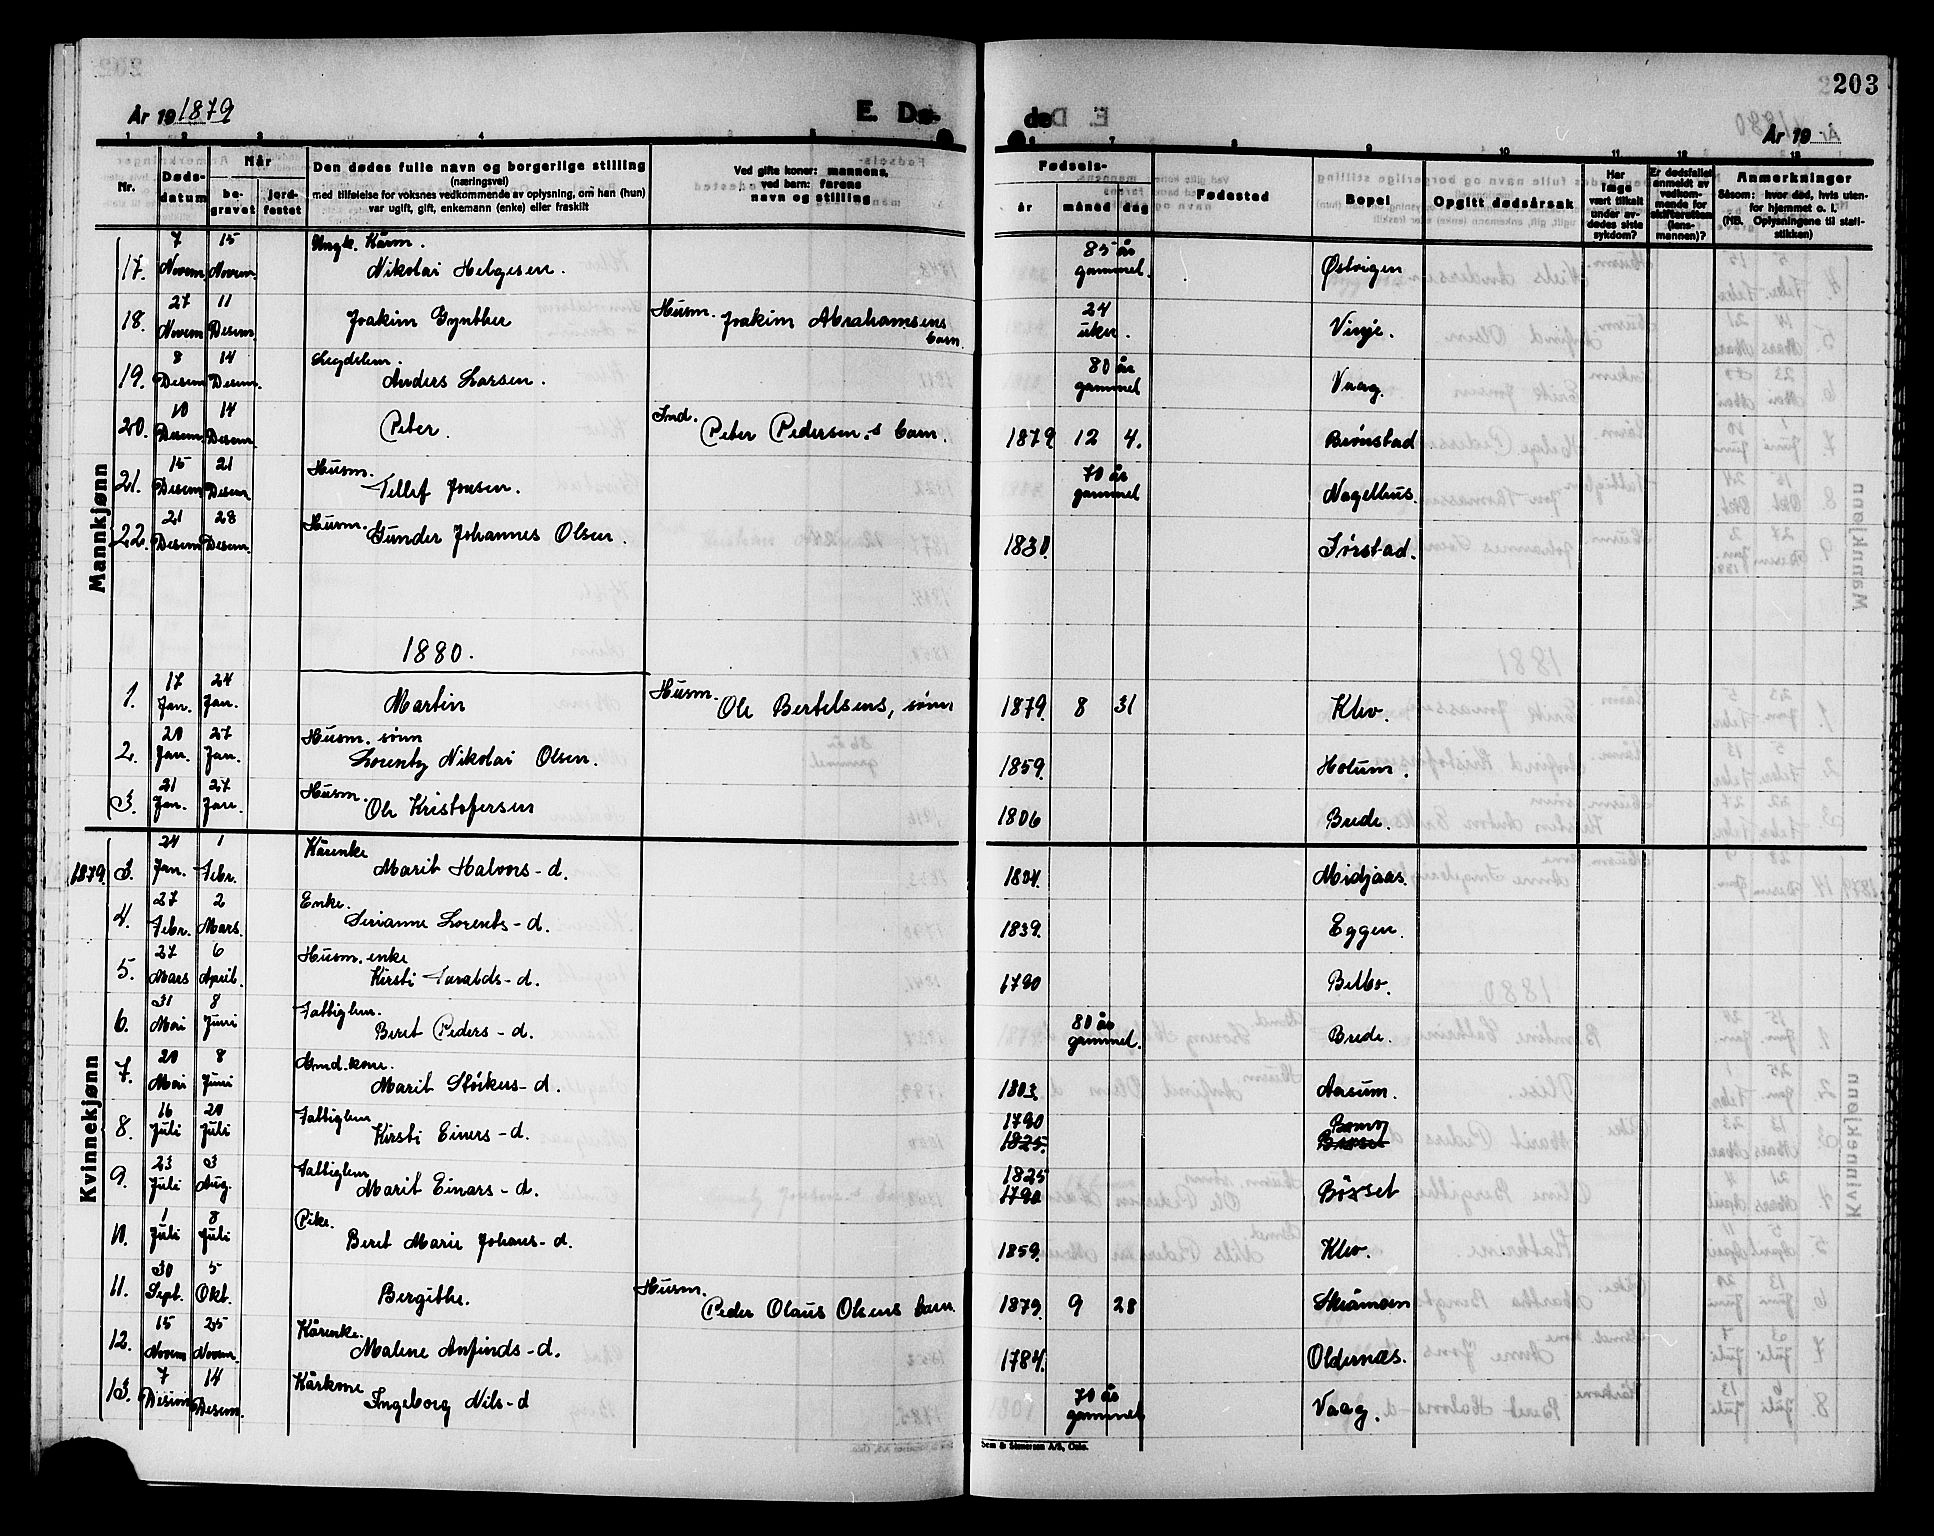 203
År 19 1879
E. Dø-
de
År 19
1 2 3 4 5
6 7 8 9 10 11 12 13
Nr.
Døds-
datum
Når
be-
gravet
jord-
festet
Den dødes fulle navn og borgerlige stilling
(næringsvei)
med tilføielse for voksnes vedkommende av oplysning, om han (hun)
var ugift, gift, enkemann (enke) eller fraskilt
Ved gifte koner: mannens,
ved barn: farens
navn og stilling
Fødsels-
år måned dag
Fødested
Bopel
Opgitt dødsårsak
Har
læge
vært tilkalt
under av-
dødes siste
sykdom?
Er dødsfallet
anmeldt av
vedkom-
mende for
skifteretten
(lens-
mannen)?
Anmerkninger
Såsom: hvor død, hvis uten-
for hjemmet o. l.
(NB. Oplysningene til stati-
stikken)
Mannkjønn
17. 7 Novem 15 Novem. Ungk. Kårm. Nikolai Helgesen. 85 år gammel. Østvigen
18. 27 Novem 11 Desem Joakim Gynther Husm. Joakim Abrahamsens barn. 24 uker. Vinje.
19. 8 Desem 14 Desem. Legdslem. Anders Larsen. 80 år gammel Vaag.
20. 10 Desem 14 Desem Peter. Ind. Peter Pedersen.s barn. 1879 12 4. Brønstad
21. 15 Desem 21 Desem Husm. Tellef Jonsen. 70 år gammel Nagelhus.
22. 21 Desem 28 Desem. Husm. Gunder Johannes Olsen. 1830. Sørstad.
1880.
1. 17 Jan. 24 Jan. Martin Husm. Ole Bertelsens, sønn 1879. 8 31 Klev.
2. 20 Jan. 27 Jan. Husm. sønn Lorentz Nikolai Olsen. 1859. Holum.
3. 21 Jan. 27 Jan. Husm. Ole Kristofersen 1806 Brede.
Kvinnekjønn
1879. 3. 24 Jan. 1 Febr. Kårenke Marit Halvors-d. 1804. Midjaas.
4. 27 Febr. 2 Mars. Enke. Serianne Lorents-d. 1839. Eggen.
5. 27 Mars 6 April. Husm. enke Kirsti Tavalds-d. 1790 Belbo.
6. 31 Mai 8 Juni Fattiglem. Beret Peders-d. 80 år gammel. Brede.
7. 20 Mai 8 Juni kone. Marit Störkers-d. 1803. Aasum.
8. 16 Juli 20 Juli Fattiglem Kirsti Einers-d. 1790 1825.
9. 23 Juli 3 Aug. Fattiglem Marit Einars-d. 1825 1790 Böxset
10. 1 Juli 8 Juli Pike. Beret Marie Johans-d. 1859. Klev.
11. 30 Sept. 5 Okt. Bergithe. Husm. Peder Olaus Olsens barn 1879. 9 28 Skrämoen
12. 15 Novem 25 Novem. Kårenke. Malene Anfinds-d. 1784. Oldernæs.
13. 7 Desem 14 Desem. Kårkone Ingeborg Nils-d 70 år gammel Vaag.
Sem & Stenersen A/S, Oslo.